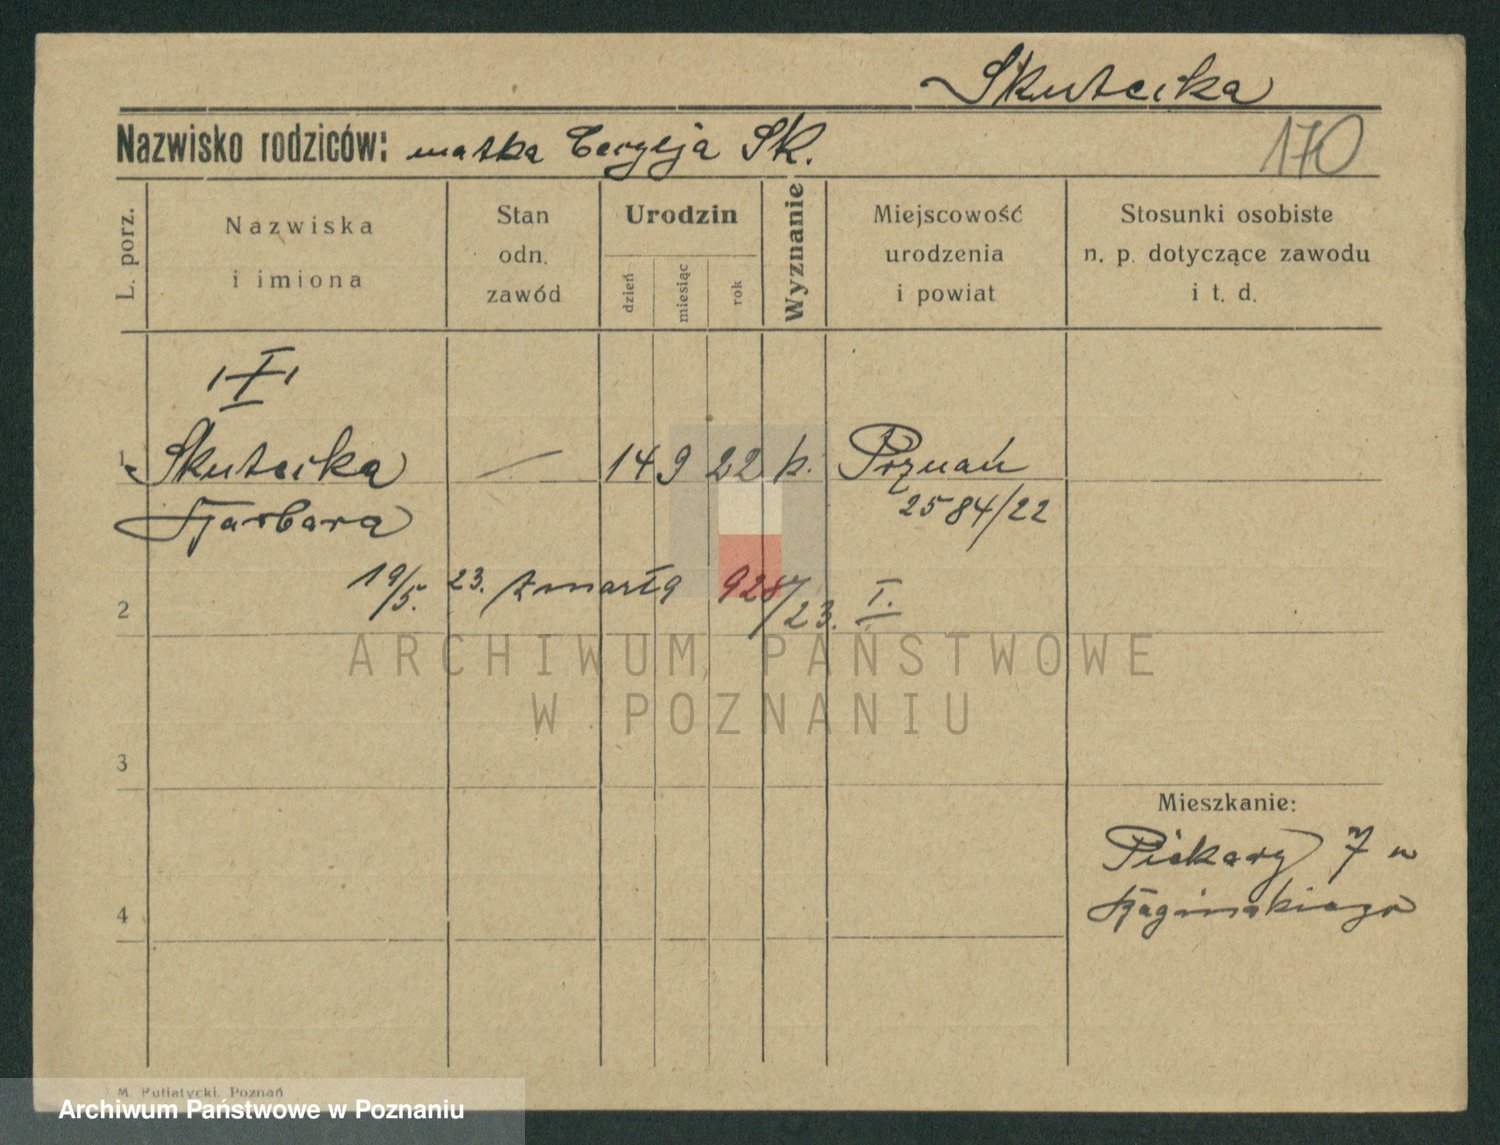 Skutecka
Nazwisko rodziców: matka Cecylja Sk.
170
L. porz.
Nazwiska
i imiona
Stan
odn.
zawód
Urodzin
dzień
miesiąc
rok
Wyznanie
Miejscowość
urodzenia
i powiat
Stosunki osobiste
n. p. dotyczące zawodu
i t. d.
1 Skutecka — 14 9 22 k. Poznań
Barbara 2584/22
19/5. 23. zmarła 928/23. I.
2
3
Mieszkanie:
Piekary 7 u
4
M. Putiatycki, Poznań
ARCHIWUM PAŃSTWOWE
W POZNANIU
Archiwum Państwowe w Poznaniu